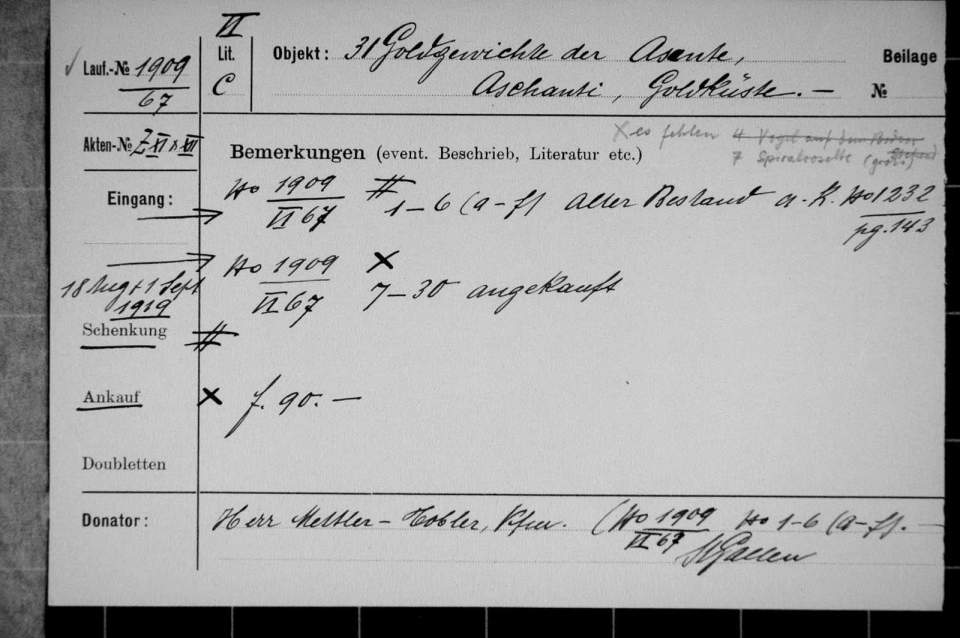 VI
Lauf.-№ 1909
67
Lit. C
Objekt: 31 Goldgewichte der Asante,
Aschanti, Goldküste. —
Beilage №
Akten-№ Z XI & XII
Bemerkungen (event. Beschrieb, Literatur etc.)
X es fehlen 4 Vogel auf dem Boden
7 Spiralrosette (gross)
Eingang: → No 1909 VI 67 # 1–6 (a–f) alter Bestand a. K. No 1232
pg. 143
→ No 1909 VI 67 × 7–30 angekauft
18 Aug + 1 Sept
1919
Schenkung #
Ankauf × f. 90. —
Doubletten
Donator: Herr Mettler – Tobler, Kfm. (No 1909 VI 67 No 1–6 (a–f). —
St Gallen